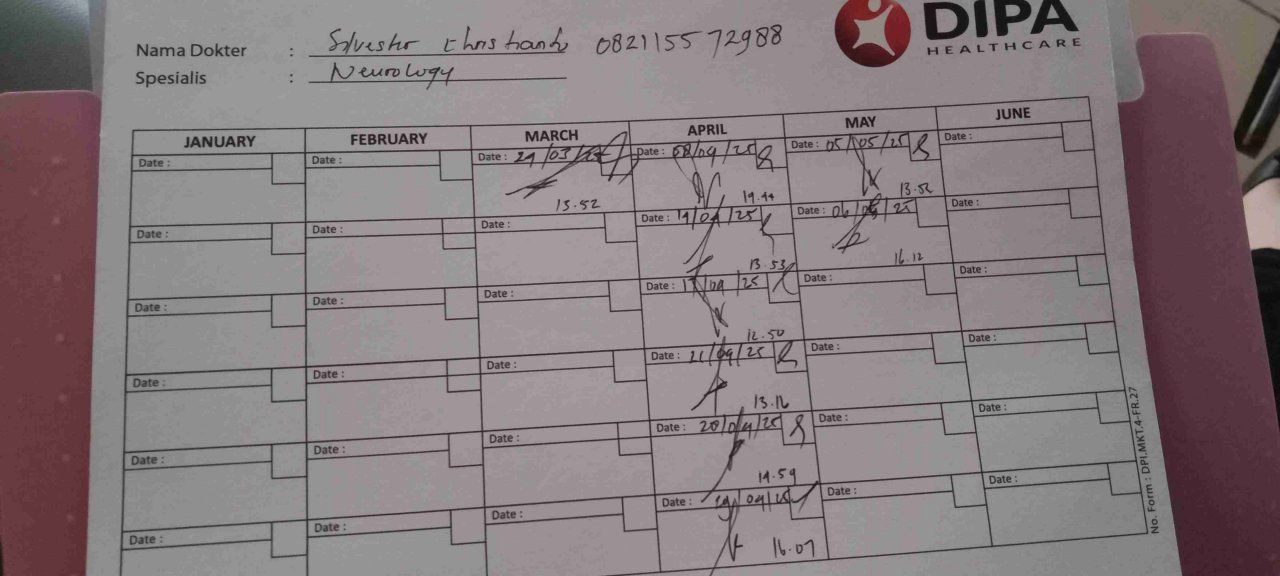 DIPA
HEALTHCARE
Nama Dokter : Silvester Christianto 082115572988
Spesialis : Neurology
JANUARY FEBRUARY MARCH APRIL MAY JUNE
Date : Date : Date : 29/03/25 Date : 08/04/25 Date : 05/05/25 Date :
13.52 14.44 13.52
Date : Date : Date : Date : 14/04/25 Date : 06/05/25 Date :
13.53 16.12
Date : Date : Date : Date : 17/04/25 Date : Date :
12.50
Date : Date : Date : Date : 21/04/25 Date : Date :
13.16
Date : Date : Date : Date : 28/04/25 Date : Date :
14.59
Date : Date : Date : Date : 29/04/25 Date : Date :
16.07
No. Form : DPI.MKT.4-FR.27